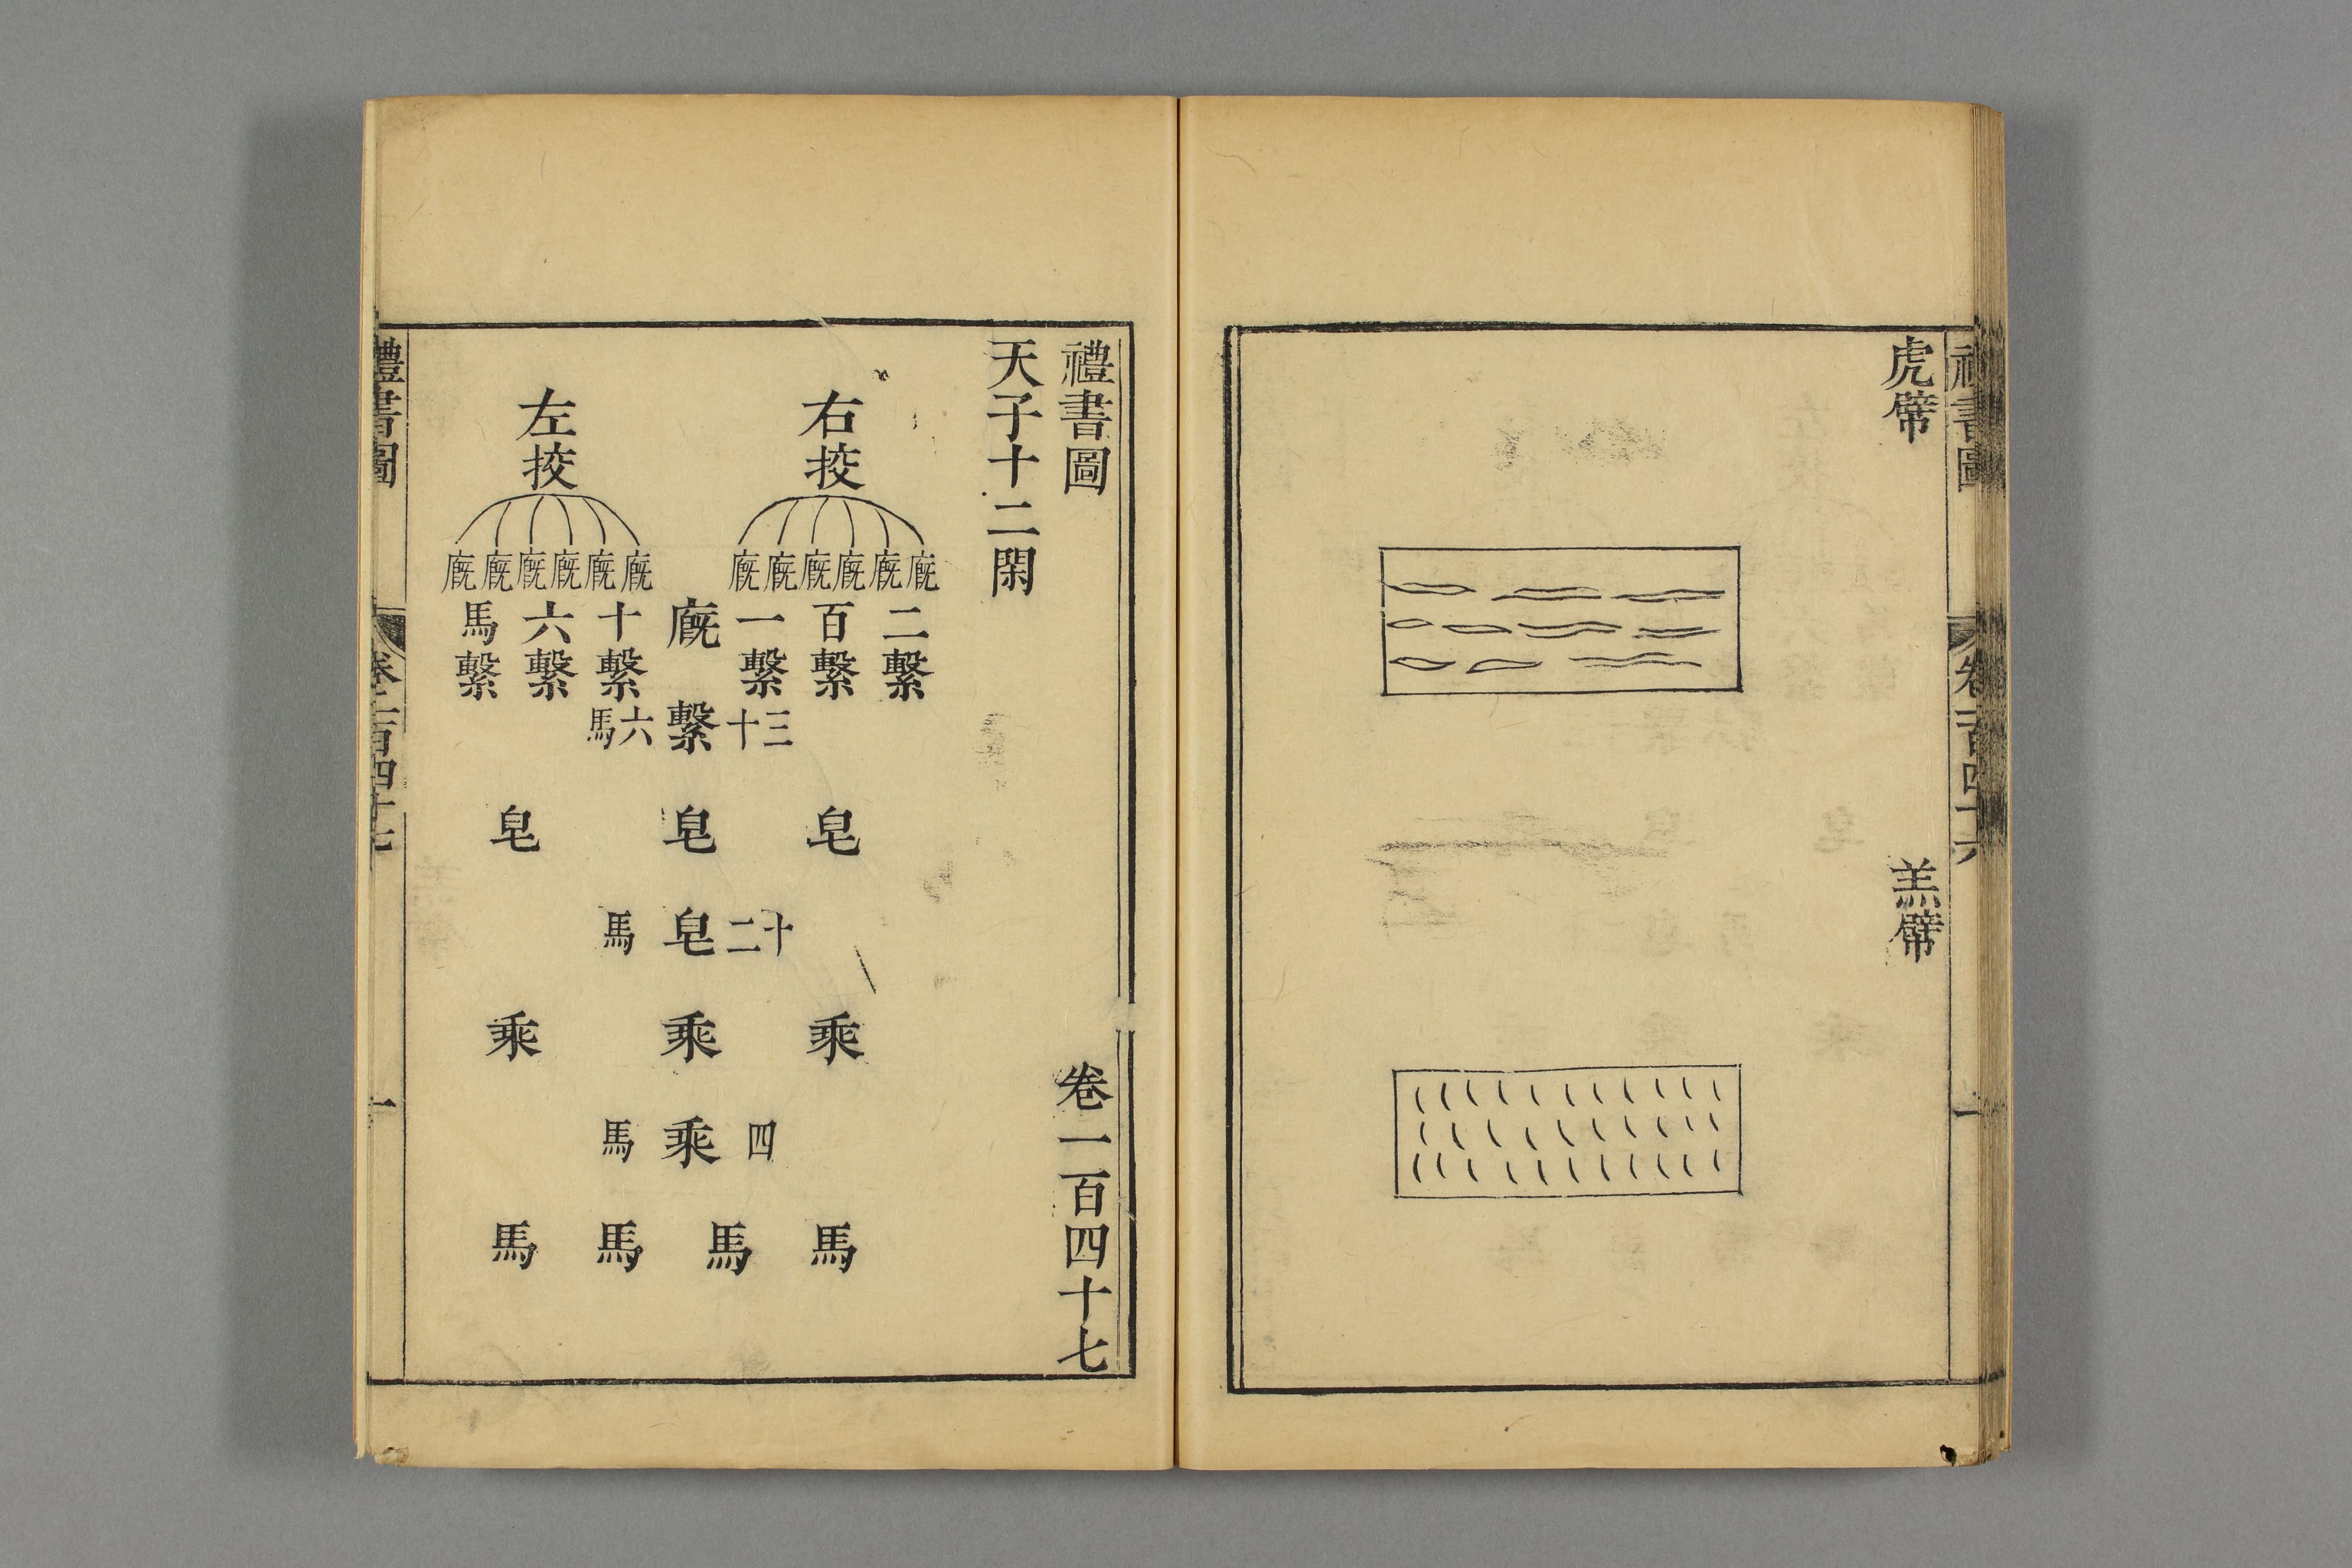 禮書圖
卷一百四十六
一
虎幦
羔幦
禮書圖 卷一百四十七
天子十二閑
右挍 左挍
廐廐廐廐廐廐 廐廐廐廐廐廐
二百一廐十六馬
繫繫繫 繫繫繫
三十繫六馬
皂 皂 皂
十二皂馬
乘 乘 乘
四乘馬
馬 馬 馬 馬
禮書圖
卷一百四十七
一